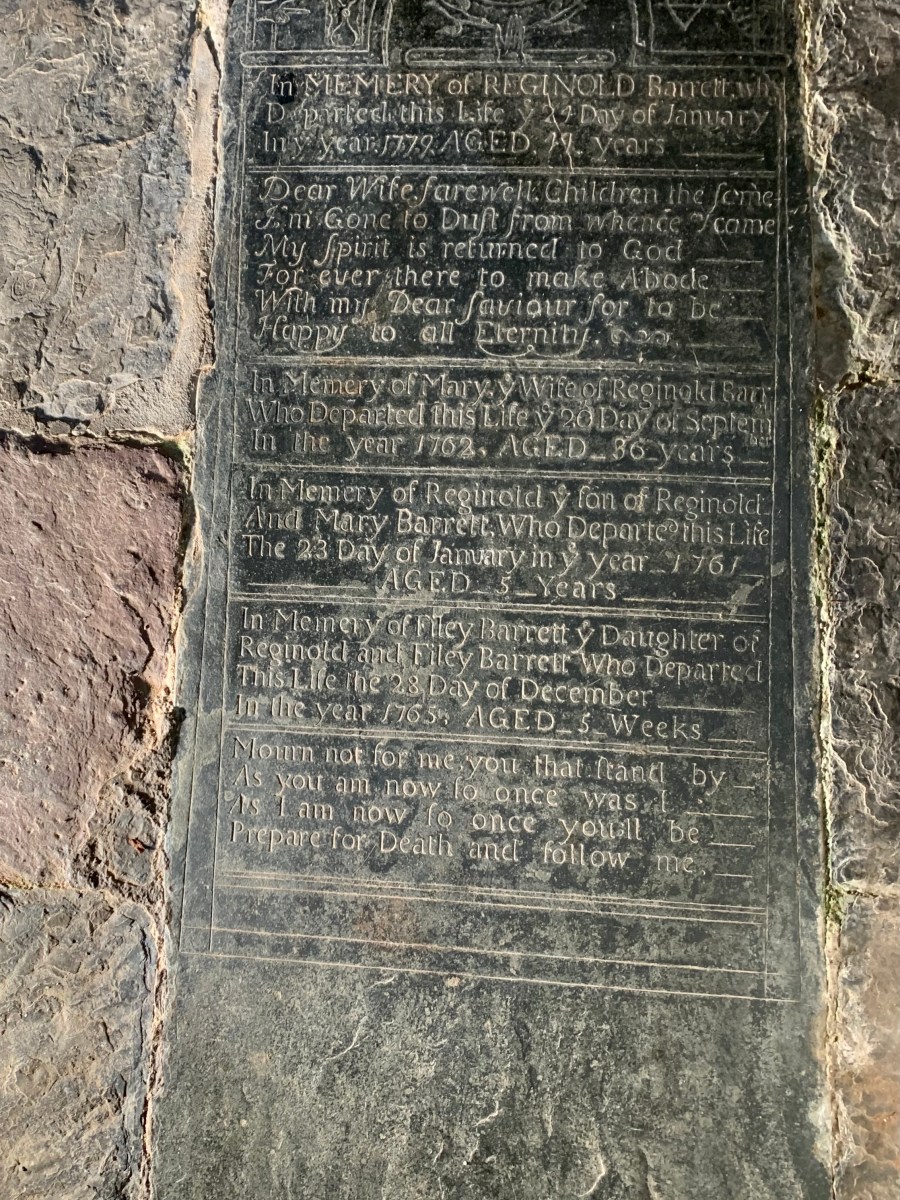 In MEMERY of REGINOLD Barrett, who
Departed this Life ẏ 24 Day of January
In ẏ year 1779. AGED. years
Dear Wife farewell Children the same
I,m Gone to Dust from whence I came
My spirit is returned to God
For ever there to make Abode
With my Dear saviour for to be
Happy to all Eternity.
In Memery of Mary, ẏ Wife of Reginold Barr
Who Departed this Life ẏ 20 Day of Septem
ber
In the year 1762. AGED 36 years
In Memery of Reginold ẏ son of Reginold
And Mary Barrett, Who Departed this Life
The 23 Day of January in ẏ year 1761
AGED 5 Years
In Memery of Filey Barrett ẏ Daughter of
Reginold and Filey Barrett Who Departed
This Life the 28 Day of December
In the year 1765, AGED 5 Weeks
Mourn not for me you that stand by
As you am now so once was I
As I am now so once you:ll be
Prepare for Death and follow me.